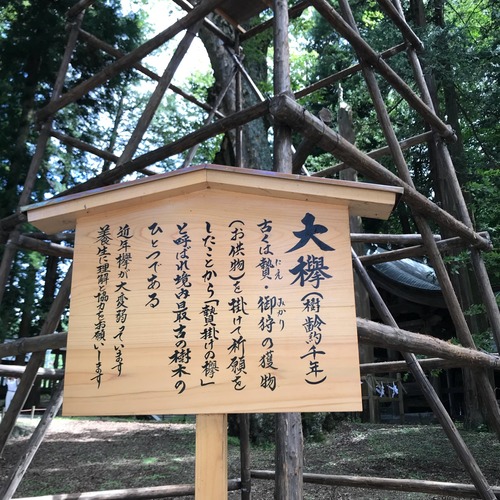 大欅(樹齢約千年)
古くは贄・御狩の獲物
にえ
みかり
(お供物)を掛けて祈願を
したことから「贄掛けの欅」
と呼ばれ境内最古の樹木の
ひとつである
近年欅が大変弱っています
養生に理解と協力をお願いします